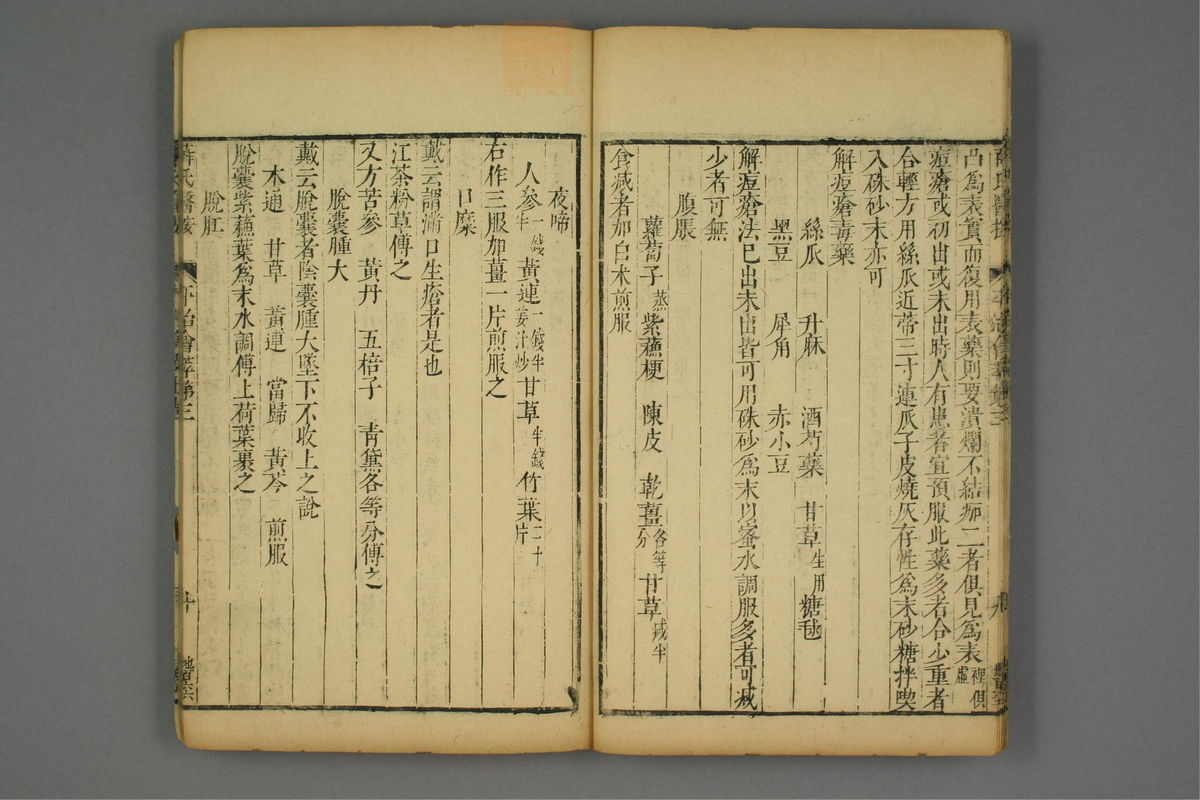 凸為表實而復用表藥則要潰爛不結痂二者俱見為表裡俱虛
痘瘡或初出或未出時人有患者宜預服此藥多者令少重者
令輕方用絲瓜近蒂三寸連瓜子皮燒灰存性為末砂糖拌喫
入硃砂末亦可
解痘瘡毒藥
絲瓜 升麻 酒芍藥 甘草生用 糖毬
黑豆 犀角 赤小豆
解痘瘡法已出未出皆可用硃砂為末以蜜水調服多者可減
少者可無
腹脹
蘿蔔子蒸 紫蘓梗 陳皮 乾薑各等分 甘草减半
食减者加白朮煎服
夜啼
人參一錢半 黃連一錢半姜汁炒 甘草半錢 竹葉二十片
右作三服加薑一片煎服之
口糜
戴云謂滿口生瘡者是也
江茶粉草傅之
又方苦參 黃丹 五棓子 青黛各等分傅之
脫囊腫大
戴云脫囊者陰囊腫大墜下不收上之說
木通 甘草 黃連 當歸 黃芩 煎服
脫囊紫蘓葉為末水調傅上荷葉裹之
脫肛
薛氏醫按 平治會萃第三 十